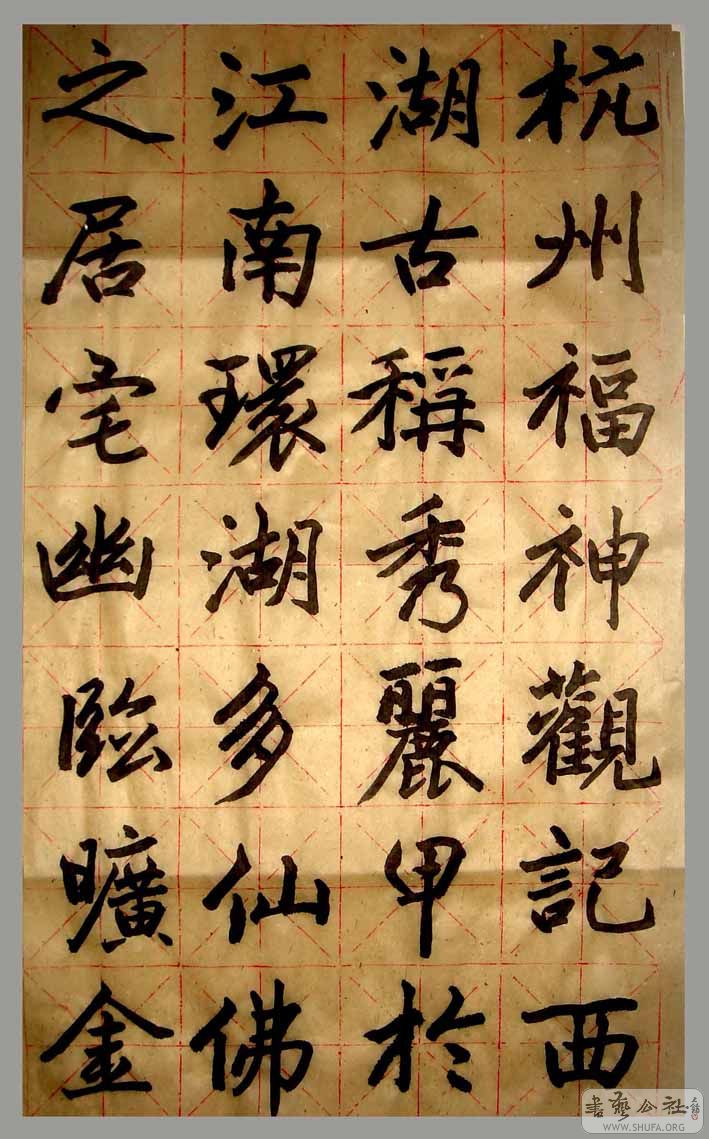 杭州福神觀記西
湖古稱秀麗甲於
江南環湖多仙佛
之居宅幽臨曠金
書藝公社
WWW.SHUFA.ORG